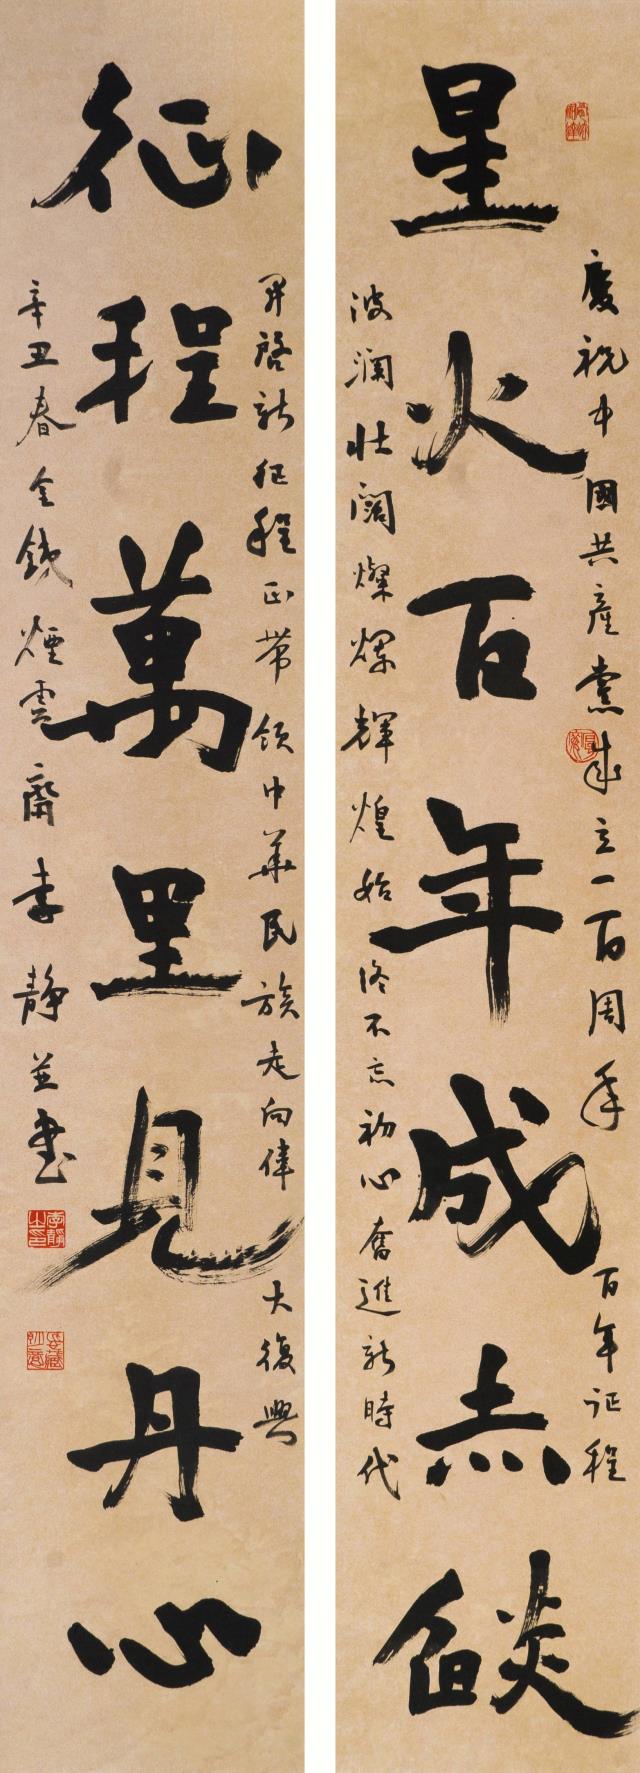 慶祝中國共產黨成立一百周年 百年征程
星火百年成赤燄
波澜壮阔燦爛輝煌始终不忘初心奮進新時代
開啓新征程正带领中華民族走向偉大復興
征程萬里見丹心
辛丑春金錢煙雲齋李靜並书
李靜之印